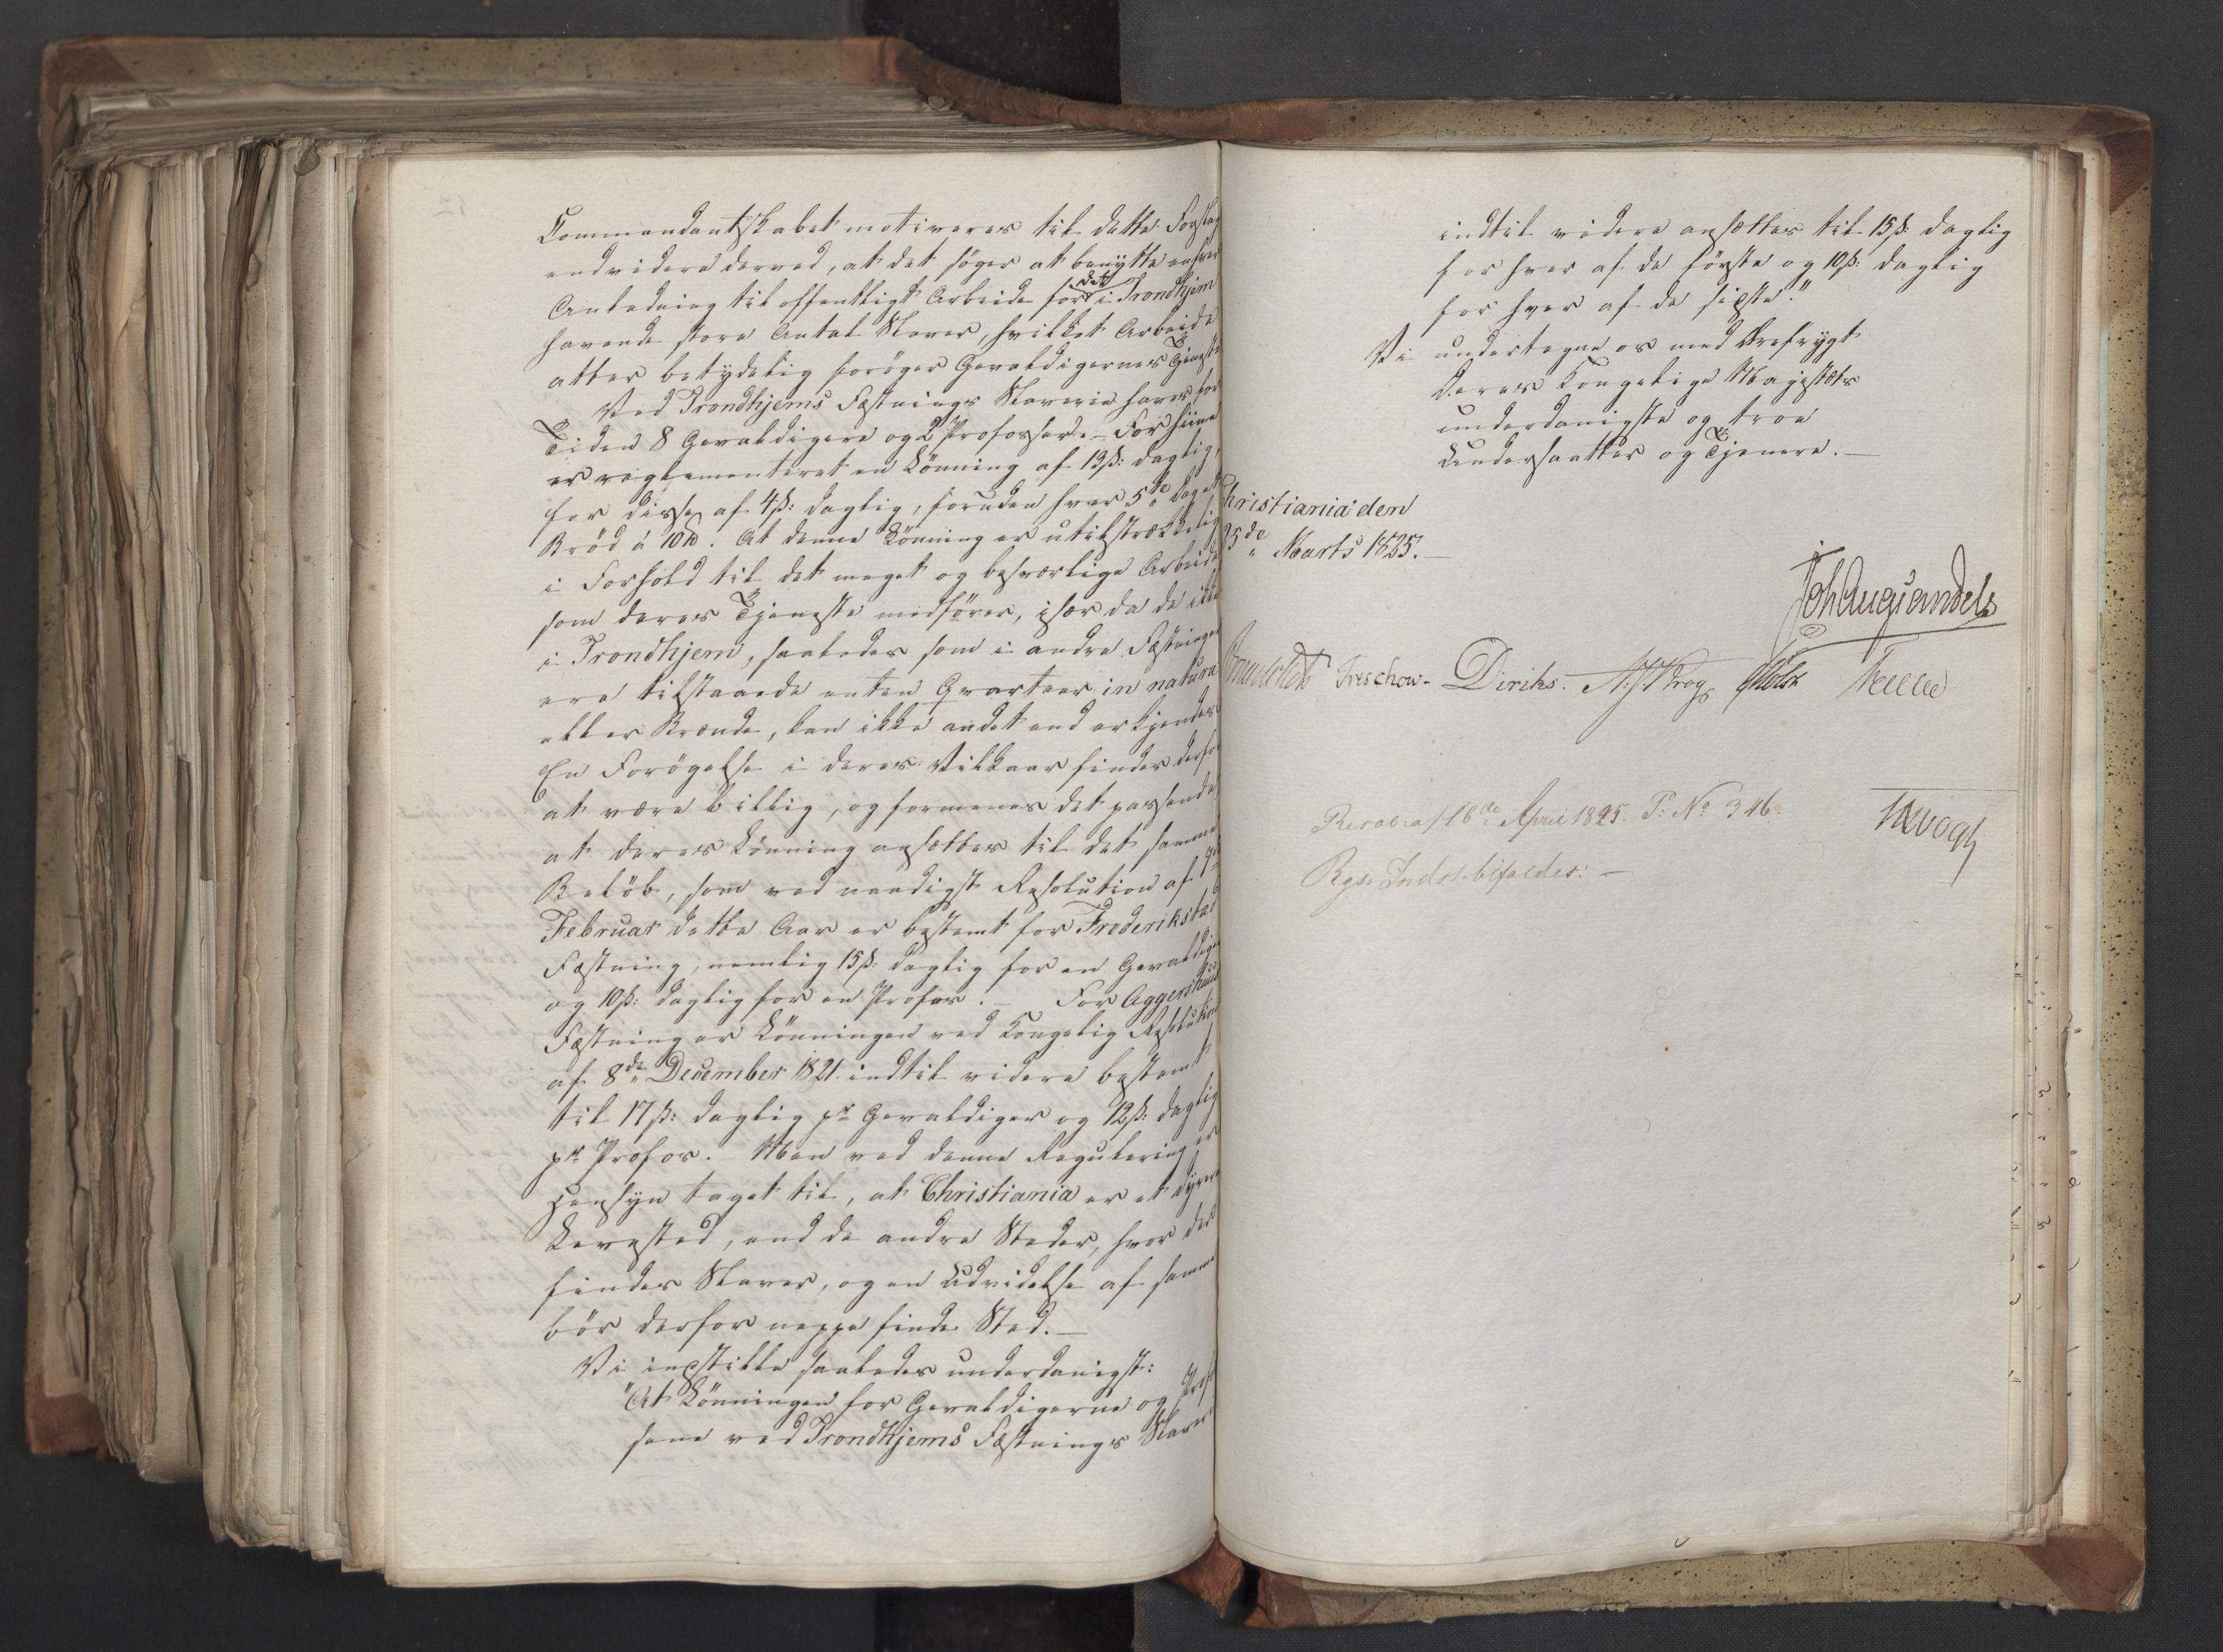 Commandantskabet motiveres til dette Forslag
endvidere derved, at det søger at benytte enhver
Anledning til offentligt Arbeide for det i Trondhjem
havende store Antal Slaver, hvilket Arbeide
atter betydelig forøger Gevaldigernes Tjeneste
Ved Trondhjems Fæstnings Slaverie haves for
Tiden 8 Gevaldigere og 2 Profosser. – For hiine
er reglementeret en Lønning af 13 ß: daglig,
for disse af 4 ß: daglig, foruden hver 5te Dag et
Brød á 10 ℔. At denne Lønning er utilstrækkelig
i Forhold til det meget og besværlige Arbeide
som deres Tjeneste medfører, især da de ikke
i Trondhjem, saaledes som i andre Fæstninger
ere tilstaaede enten Qvarteer in natura
eller Brænde, kan ikke andet end erkjendes
En Forøgelse i deres Vilkaar findes derfor
at være billig, og formenes det passende
at deres Lønning ansættes til det samme
Beløb, som ved naadigst Resolution af 7de
Februar dette Aar er bestemt for Frederikstad
Fæstning, nemlig 15 ß: daglig for en Gevaldiger
og 10 ß: daglig for en Profos. – For Aggershuus
Fæstning er Lønningen ved Kongelig Resolution
af 8de December 1821 indtil videre bestemt
til 17 ß: daglig pr Gevaldiger og 12 ß: daglig
pr Profos. Men ved denne Regulering er
Hensyn taget til, at Christiania er et dyrere
Levested, end de andre Steder, hvor der
findes Slaver, og en Udvidelse af samme
bør derfor neppe finde Sted. –
Vi instille saaledes underdanigst:
"At Lønningen for Gevaldigerne og Profos
sene ved Trondhjems Fæstnings Slaveri
indtil videre ansættes til 15 ß: daglig
for hver af de første og 10 ß: daglig
for hver af de sidste."
Vi undertegne os med Ærefrygt
Deres Kongelige Majestæts
underdanigste og troe
Undersaatter og Tjenere. –
Christiania den
25de Marts 1825. –
Joh Aug Sandels
Treschow. Diriks. Krog Holst
Resol. af 16de April 1825. P: No 346.
Rgs. Indst. bifaldes: –
Vogt